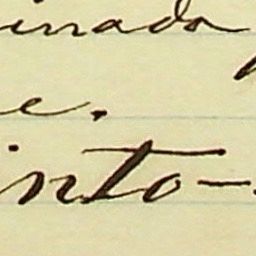 inada
e.
into-